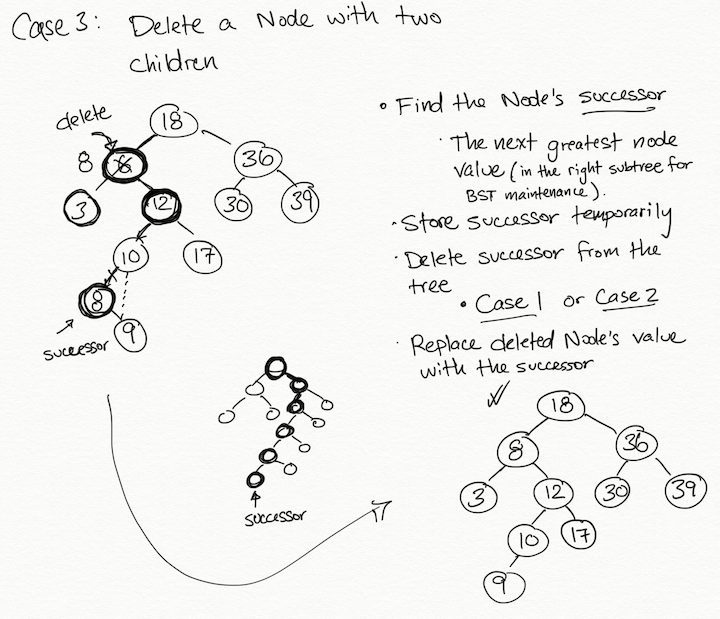 Case 3: Delete a Node with two
children
delete
18
8 6
36
3
12
30
39
10
17
8
9
successor
• Find the Node's successor
· The next greatest node
value (in the right subtree for
BST maintenance).
· Store successor temporarily
· Delete successor from the
tree
• Case 1 or Case 2
· Replace deleted Node's value
with the successor
successor
18
8
36
3
12
30
39
10
17
9